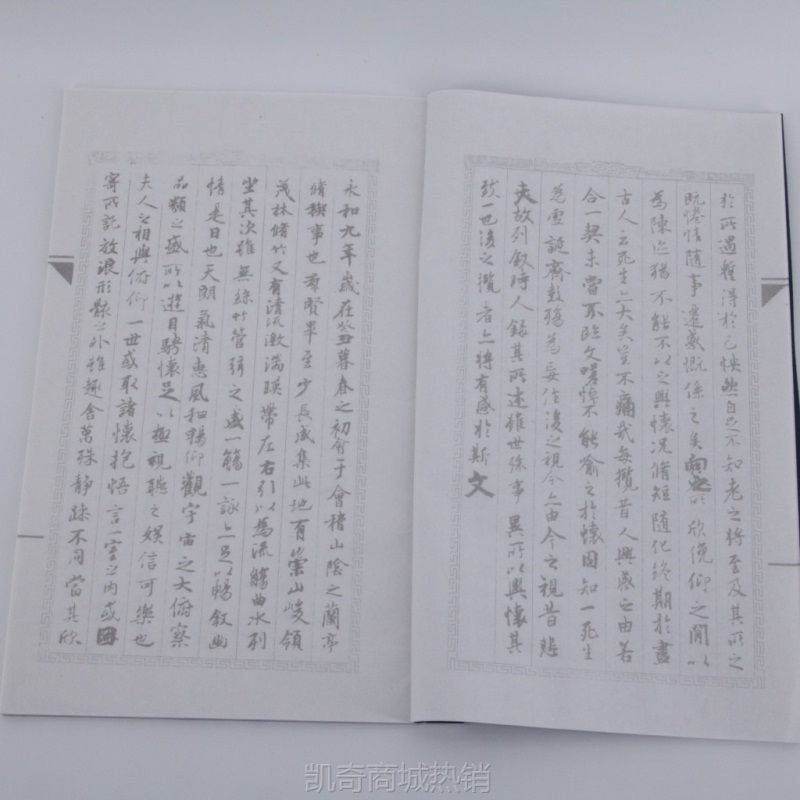 永和九年歲在癸丑暮春之初會于會稽山陰之蘭亭
脩禊事也群賢畢至少長咸集此地有崇山峻領
茂林脩竹又有清流激湍暎帶左右引以為流觴曲水列
坐其次雖無絲竹管弦之盛一觴一詠亦足以暢敘幽
情是日也天朗氣清惠風和暢仰觀宇宙之大俯察
品類之盛所以遊目騁懷足以極視聽之娛信可樂也
夫人之相與俯仰一世或取諸懷抱悟言一室之內或因
寄所託放浪形骸之外雖趣舍萬殊靜躁不同當其欣
於所遇暫得於己怏然自足不知老之將至及其所之
既惓情隨事遷感慨係之矣向之所欣俛仰之閒以
為陳迹猶不能不以之興懷況脩短隨化終期於盡
古人云死生亦大矣豈不痛哉每攬昔人興感之由若
合一契未嘗不臨文嗟悼不能喻之於懷固知一死生
為虛誕齊彭殤為妄作後之視今亦由今之視昔悲
夫故列敘時人錄其所述雖世殊事異所以興懷其
致一也後之攬者亦將有感於斯文
凯奇商城热销